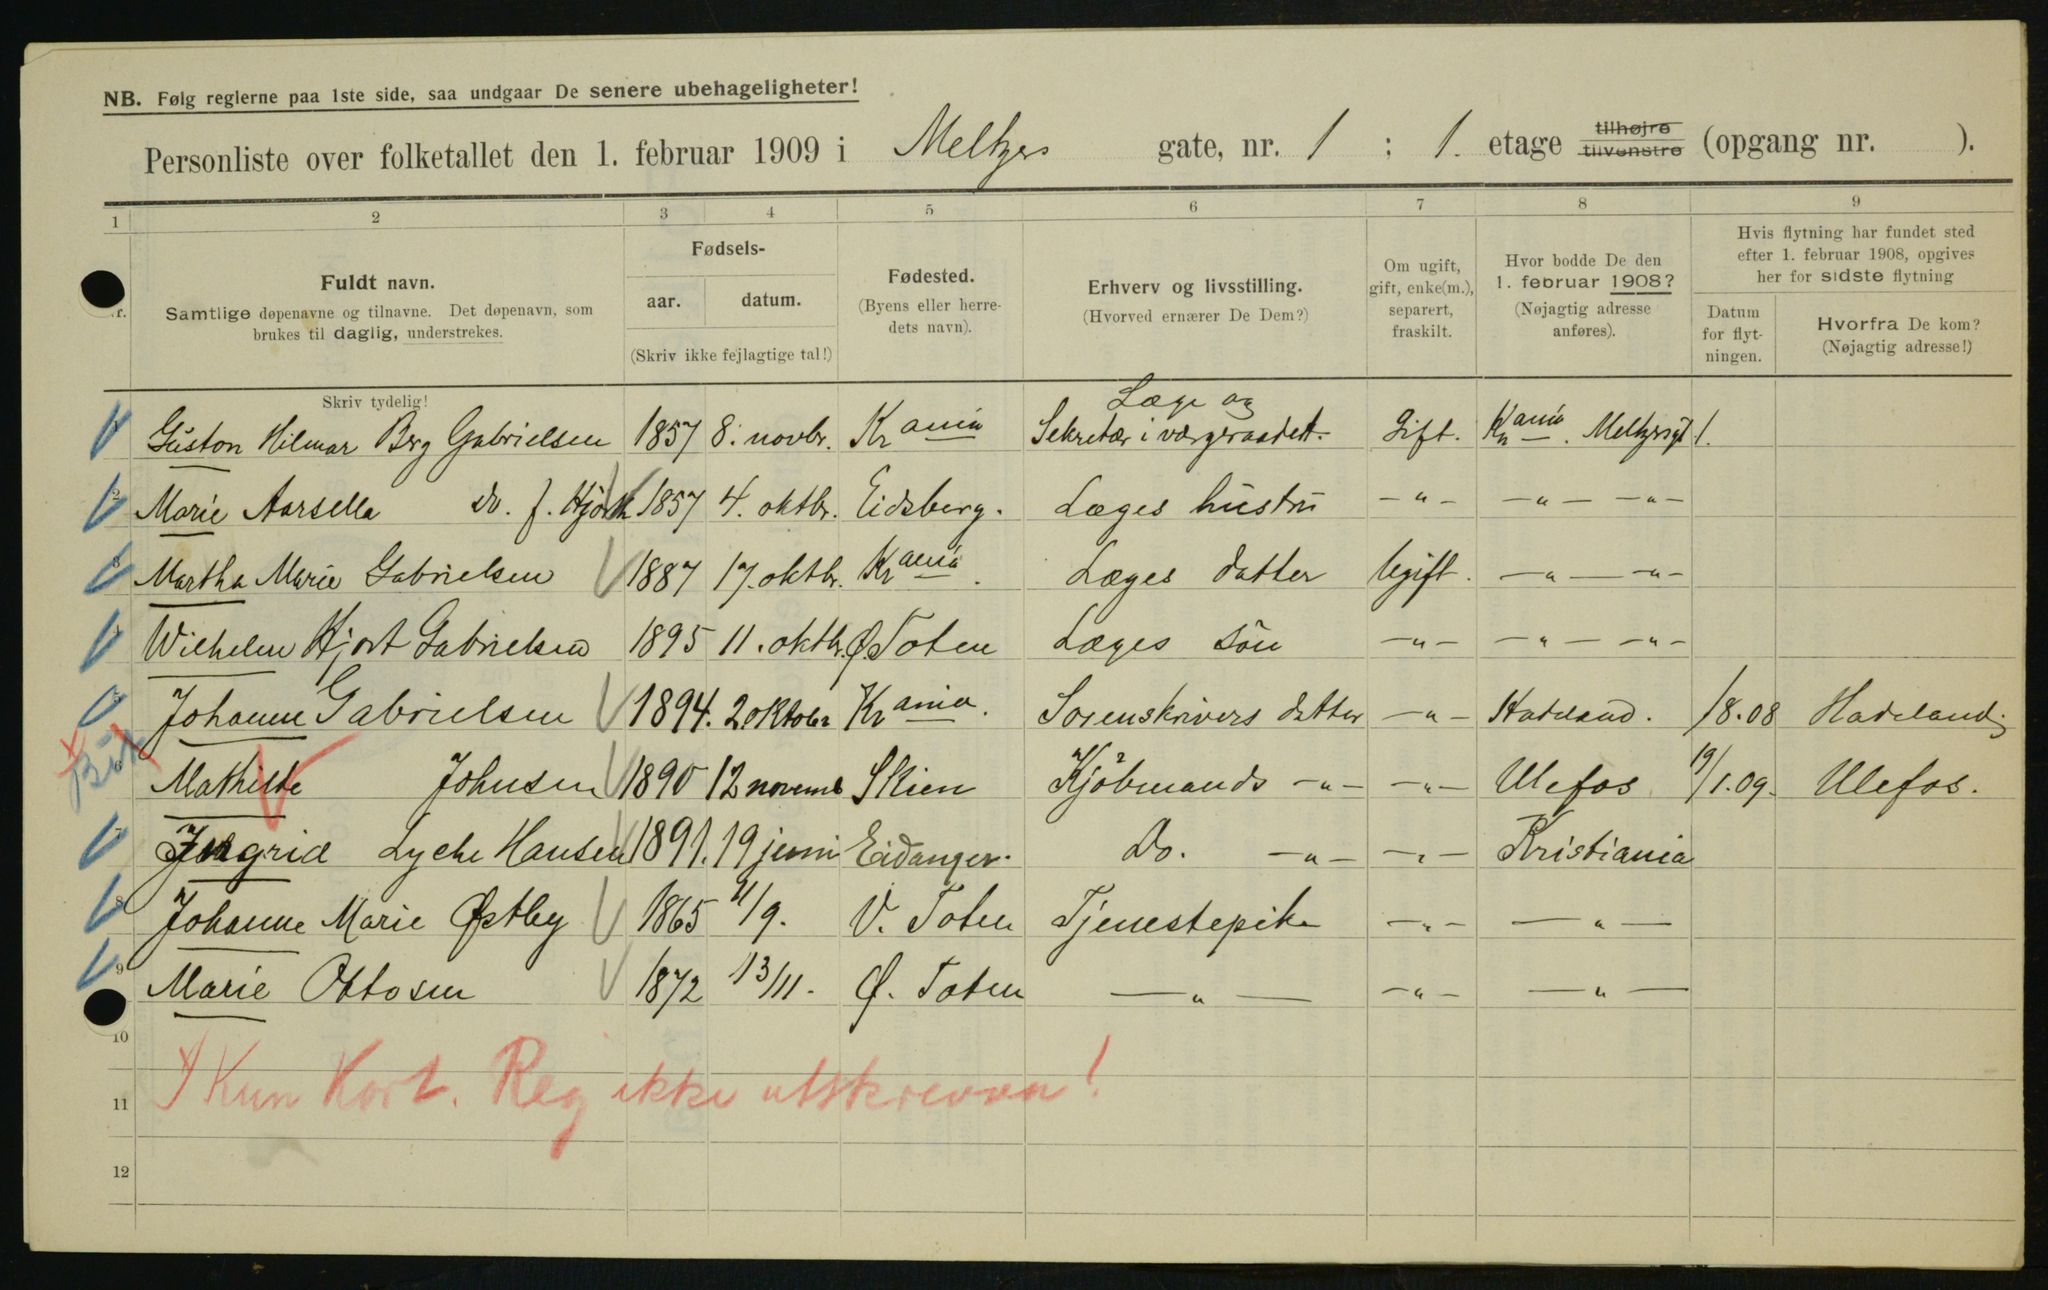 NB. Følg reglerne paa 1ste side, saa undgaar De senere ubehageligheter!
Personliste over folketallet den 1. februar 1909 i Meltzers gate, nr. 1 ; 1. etage tilhøjre tilvenstre (opgang nr. ).
1 2 3 4 5 6 7 8 9
Fuldt navn.
Samtlige døpenavne og tilnavne. Det døpenavn, som
brukes til daglig, understrekes.
Skriv tydelig!
Fødsels-
aar. datum.
(Skriv ikke fejlagtige tal!)
Fødested.
(Byens eller herre-
dets navn).
Erhverv og livsstilling.
(Hvorved ernærer De Dem?)
Om ugift,
gift, enke(m.),
separert,
fraskilt.
Hvor bodde De den
1. februar 1908?
(Nøjagtig adresse
anføres).
Hvis flytning har fundet sted
efter 1. februar 1908, opgives
her for sidste flytning
Datum
for flyt-
ningen.
Hvorfra De kom?
(Nøjagtig adresse!)
Guston Hilmar Berg Gabrielsen 1857 8. novbr. Krania Læge og Sekretær i værgeraadet. Gift. Krania. Meltzersgt 1.
2 Marie Aarsella do. f. Hjorth 1857 4. oktbr. Eidsberg. Læges hustru -"- -"- -"-
3 Martha Marie Gabrielsen 1887 17. oktbr. Krania. Læges datter Ugift. -"- -"-
Wilhelm Hjort Gabrielsen 1895 11. oktbr. Ø. Toten Læges søn -"- -"- -"-
Johanne Gabrielsen 1894. 2 oktober Krania. Sorenskrivers datter -"- Hadeland. /8.08 Hadeland
6 Mathilde Johnsen 1890 12 novemb Skien Kjöbmands -"- -"- Ulefos 19/1.09. Ulefos.
7 Ingrid Lyche Hansen 1891. 19 juni Eidanger. Do. -"- -"- Kristiania
8 Johanne Marie Østby 1865 11/9. V. Toten Tjenestepike -"- -"-
9 Marie Ottosen 1872 13/11. Ø. Toten -"- -"- -"-
10
x) Kun Kort. Reg ikke utskreven!
11
12